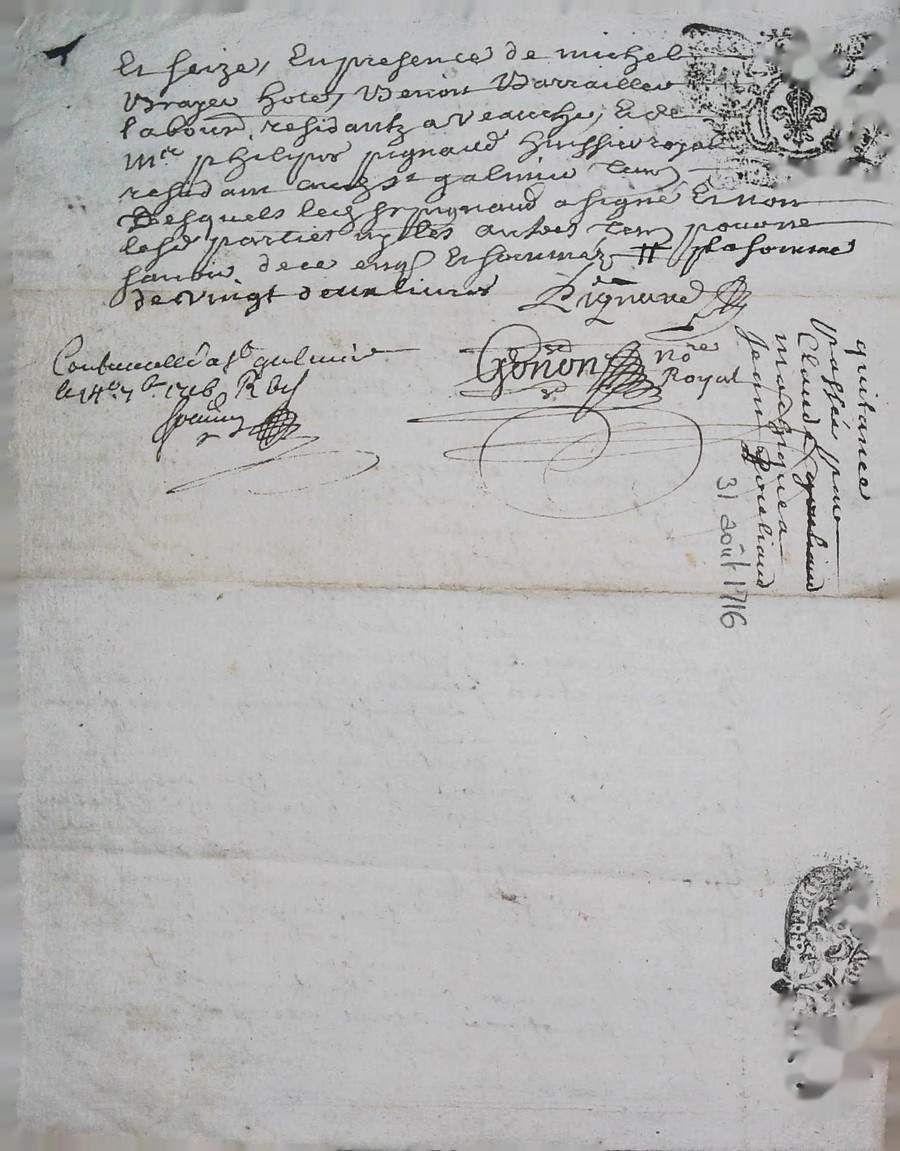 Et seize, En presence de michel
Brayer hoste, Benoit Barrailler
labour. residantz a Veauche, Et de
mre philipes pignaud huissier royal
residant audt st galmier tem
Desquels led sr pignaud a signé Et non
lesd parties ny les autres tem pour ne
scavoir de ce enq Et sommez # pla somme
de vingt deux livres
Pignaud
Controuellé a st galmier
le 14e 7b 1716 R
Gonon nore
Royal
quitance
passée par
Claude
Jean
31 août 1716